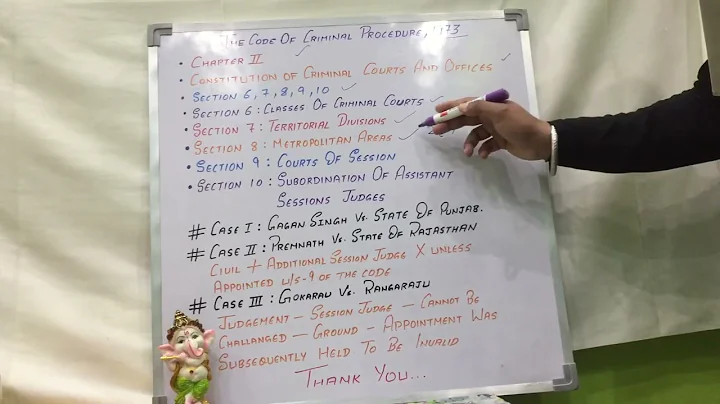 THE CODE OF CRIMINAL PROCEDURE, 1973
• CHAPTER II
• CONSTITUTION OF CRIMINAL COURTS AND OFFICES
• SECTION 6, 7, 8, 9, 10
• SECTION 6: CLASSES OF CRIMINAL COURTS
• SECTION 7: TERRITORIAL DIVISIONS
• SECTION 8: METROPOLITAN AREAS
• SECTION 9: COURTS OF SESSION
• SECTION 10: SUBORDINATION OF ASSISTANT
SESSIONS JUDGES
# CASE I: GAGAN SINGH VS. STATE OF PUNJAB.
# CASE II: PREMNATH VS. STATE OF RAJASTHAN
CIVIL + ADDITIONAL SESSION JUDGE X UNLESS
APPOINTED U/S-9 OF THE CODE
# CASE III: GOKARAU VS. RANGARAJU
JUDGEMENT – SESSION JUDGE – CANNOT BE
CHALLANGED – GROUND – APPOINTMENT WAS
SUBSEQUENTLY HELD TO BE INVALID
THANK YOU...